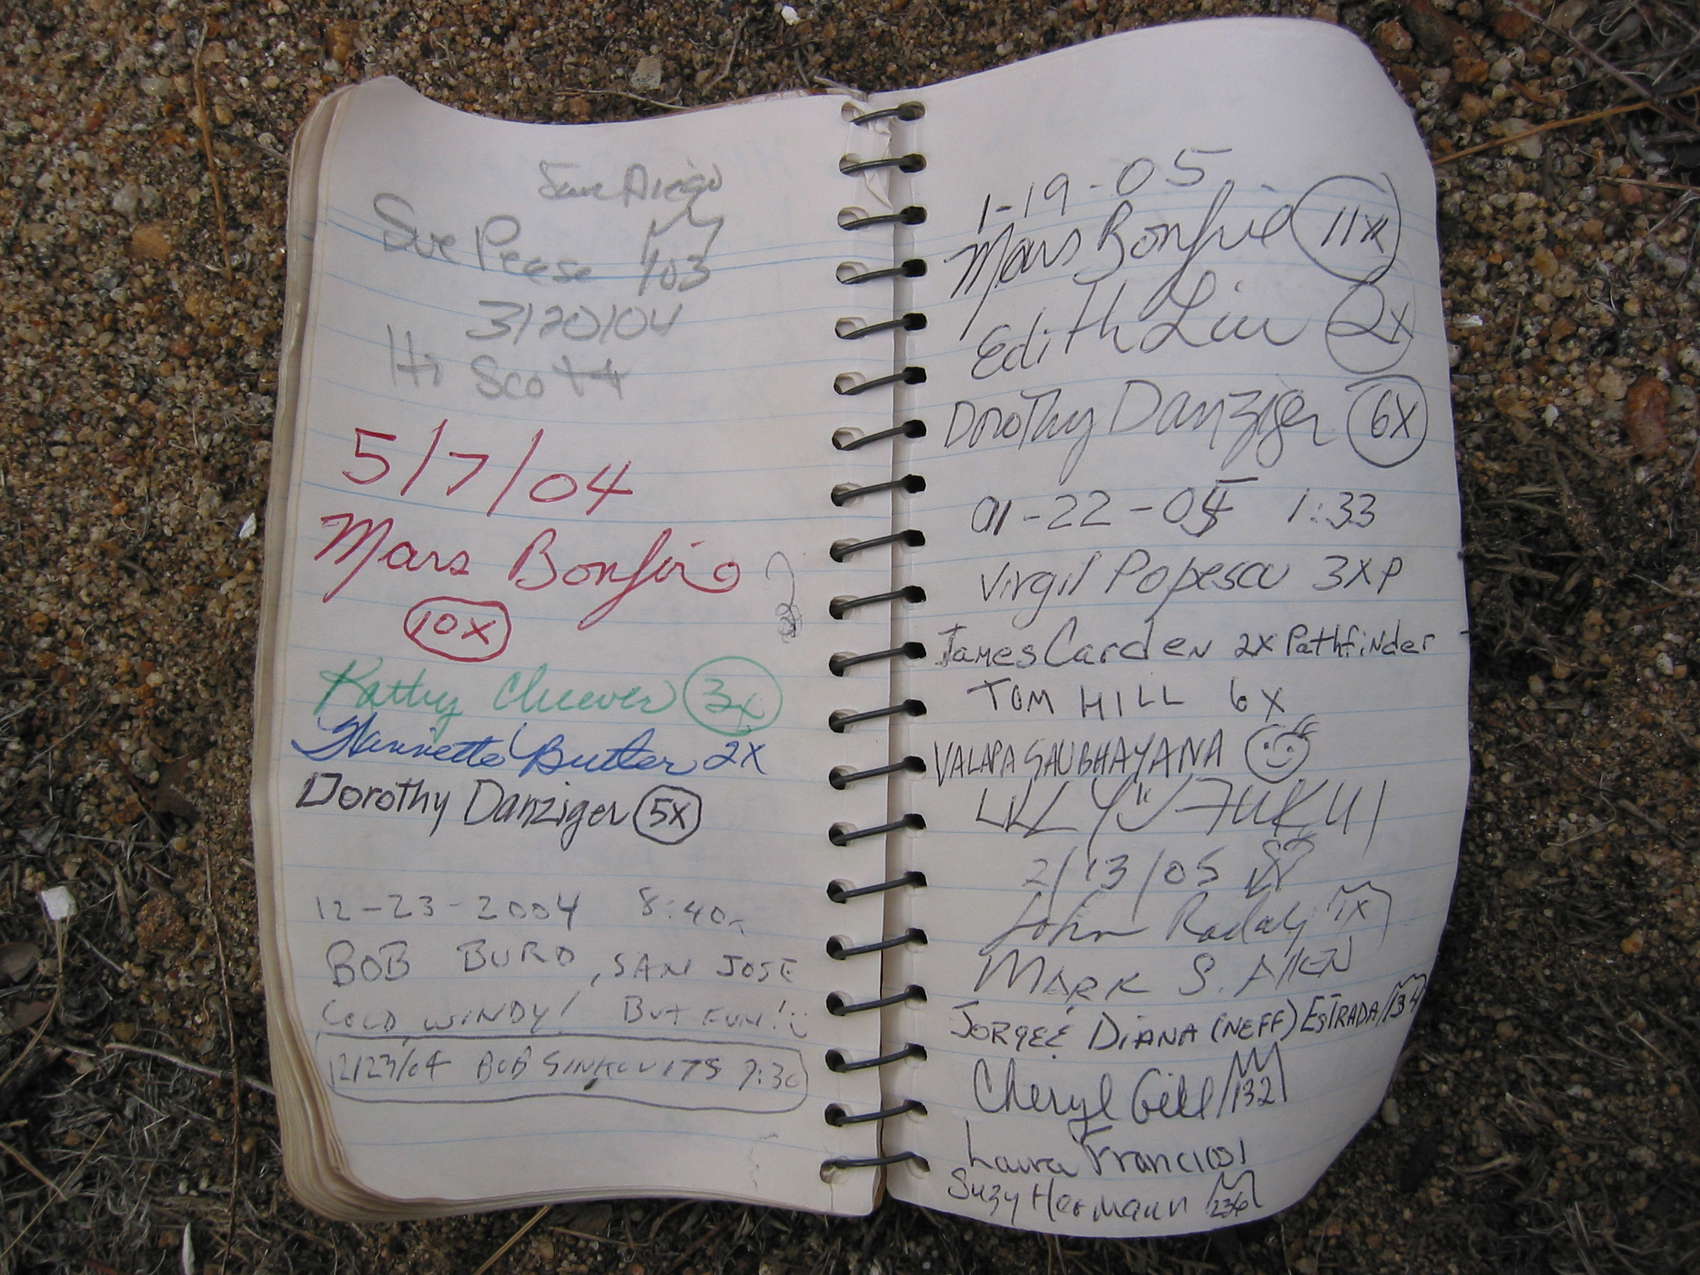 San Diego
Sue Pease 103
3/20/04
Hi Scott
5/7/04
Mars Bonfire
10x
Kathy Cheever 3x
Henriette Butler 2x
Dorothy Danziger 5x
12-23-2004 8:40
BOB BURD, SAN JOSE
COLD, WINDY! BUT FUN!
12/23/04 BOB SINKOVITS 9:30
1-19-05
Mars Bonfire 11x
Edith Liu 2x
Dorothy Danziger 6x
01-22-05 1:33
Virgil Popescu 3XP
James Carden 2x Pathfinder
TOM HILL 6X
VALAPA SAUBHAYANA
LILLY FUKUI
2/13/05
John Radaly 1x
MARK S. ALLEN
JORGE & DIANA (NEFF) ESTRADA 134
Cheryl Gill 132
Laura Francisci
Suzy Hermann 236